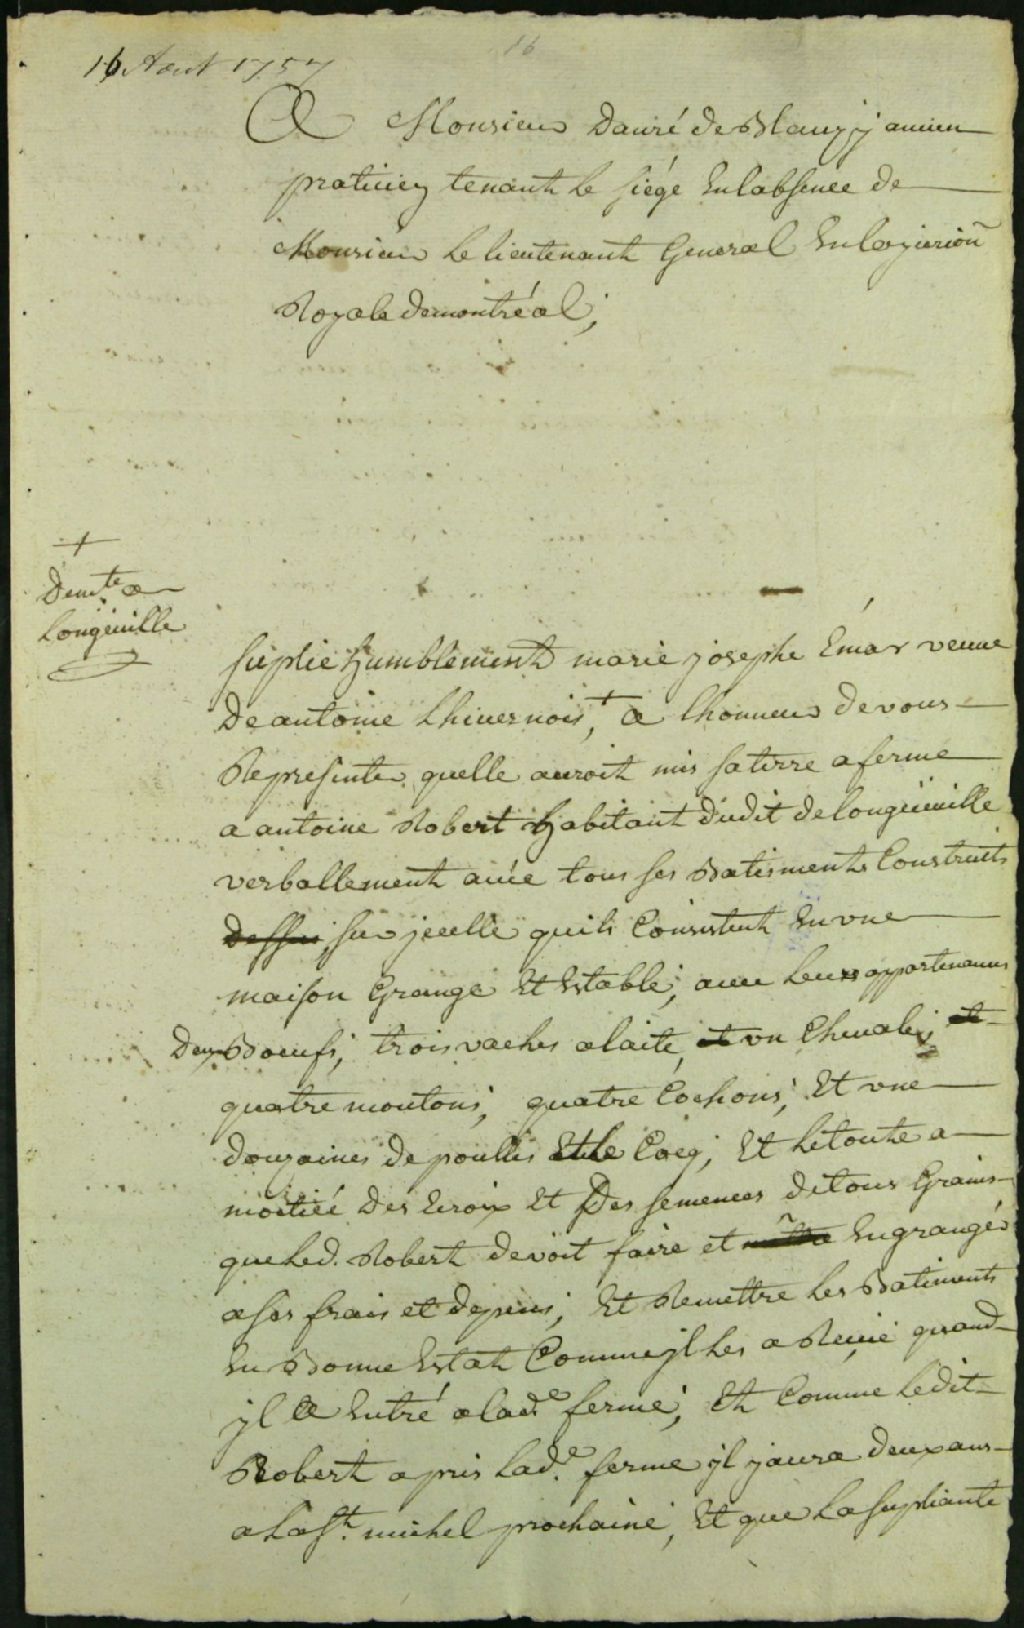 16 Aout 1757
16
A Monsieur Danré de Blanzy ancien
praticien tenant le siége En labsence de
Monsieur le lieutenant General En la jurion
Royale de montréal;
+
Demte a
Longeuille
suplie humblement marie josephe Emar veuue
De antoine Lhiuernois,+ a lhonneur de vous
Representer quelle auroit mis sa terre a ferme
a antoine Robert habitant dudit de longeuille
verballement auec tous ses Batisments Construits
dessus sur jcelle quils Consistent En vne
maison Grange Et Estable, auec leurs appartenances
Deux Boeufs, trois vaches a laite, et vn Cheualis, et
quatre moutons, quatre Cochons, Et vne
douzaines de poulles Et le Coeq, Et le toute a
moitiéé des Croix Et Des semences de tous Grains
que led. Robert devoit faire et Engrangér
a ses frais et depens, Et Remettre les Batiments
En Bonne Estat Comme jl les a Reçüe quand
jl a Entré a lade. ferme, Et Comme ledit
Robert a pris lade. ferme jl y aura deux ans
a la St. michel prochaine, Et que la supliante